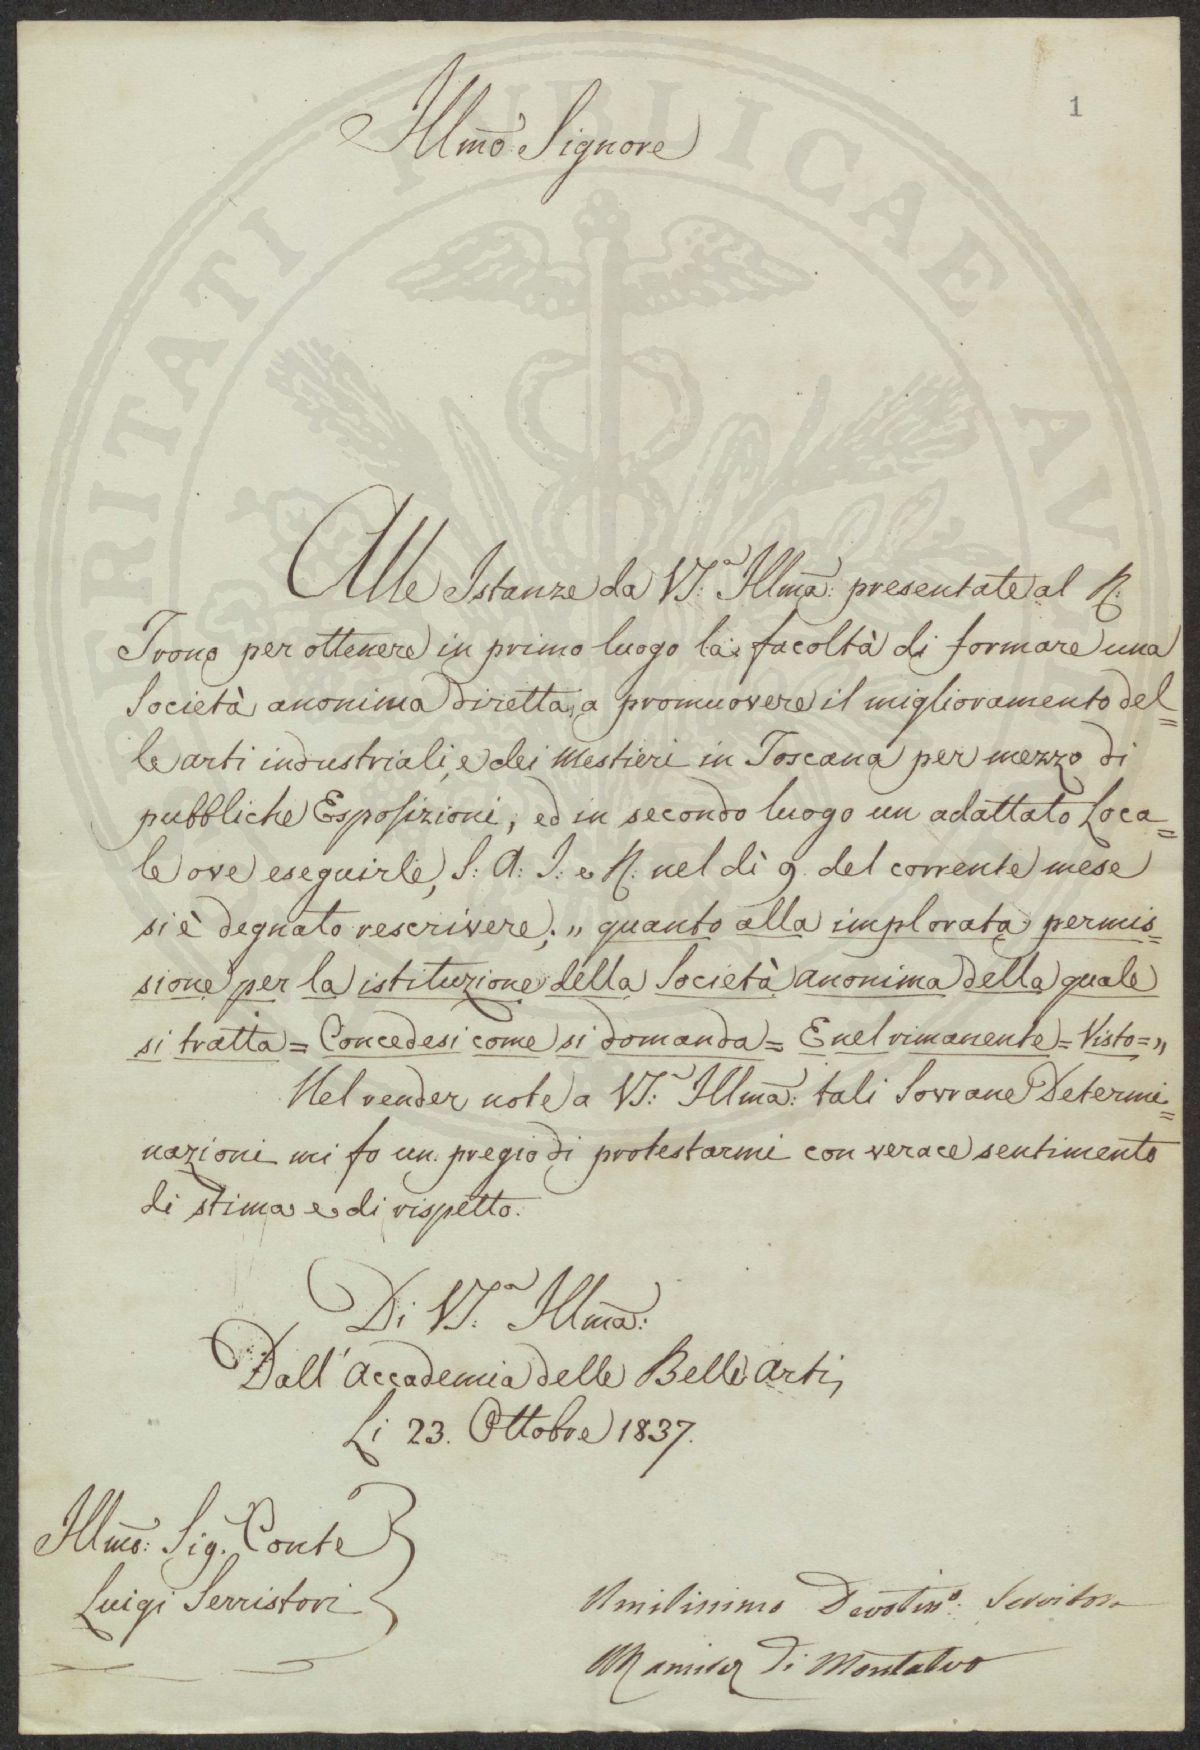 1
Illmo Signore
Alle Istanze da VS:a Illma: presentate al R:
Trono per ottenere in primo luogo la facoltà di formare una
Società anonima diretta a promuovere il miglioramento del=
le arti industriali, e dei Mestieri in Toscana per mezzo di
pubbliche Esposizioni, ed in secondo luogo un adattato Loca=
le ove eseguirle, S: A: I: e R: nel dì 9. del corrente mese
si è degnato rescrivere; „ quanto alla implorata permis=
sione per la istituzione della Società anonima della quale
si tratta = Concedesi come si domanda = E nel rimanente = Visto = „
Nel render note a VS:a Illma: tali Sovrane Determi=
nazioni mi fo un pregio di protestarmi con verace sentimento
di stima e di rispetto.
Di VS:a Illma:
Dall'Accademia delle Belle Arti,
Li 23. Ottobre 1837.
Illmo: Sig. Conte
Luigi Serristori
Umilissimo Devotisso: Servitore
Ramirez Di Montalvo